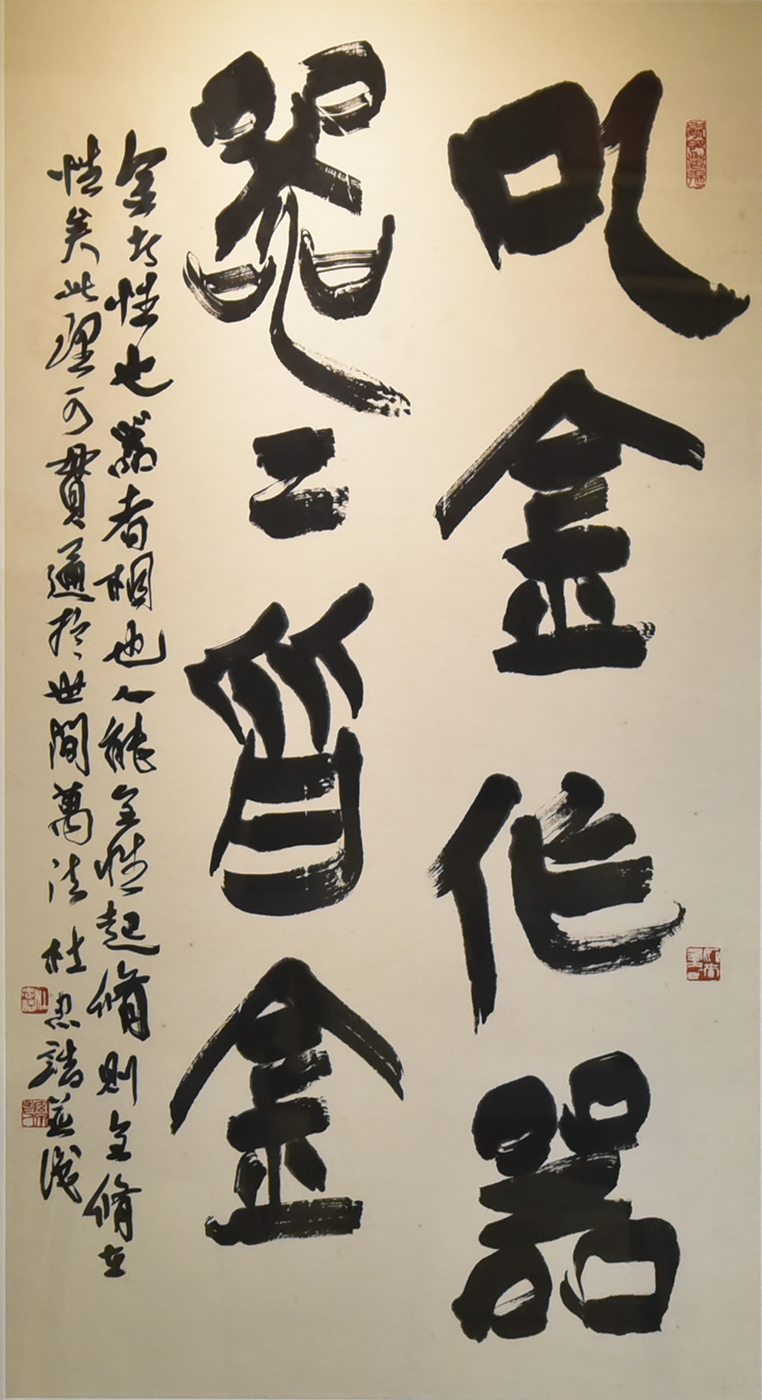 以金作器
器二皆金
金者性也器者相也人能全性起脩則全脩在
性矣此理可貫通於世間萬法 杜忠誥並識